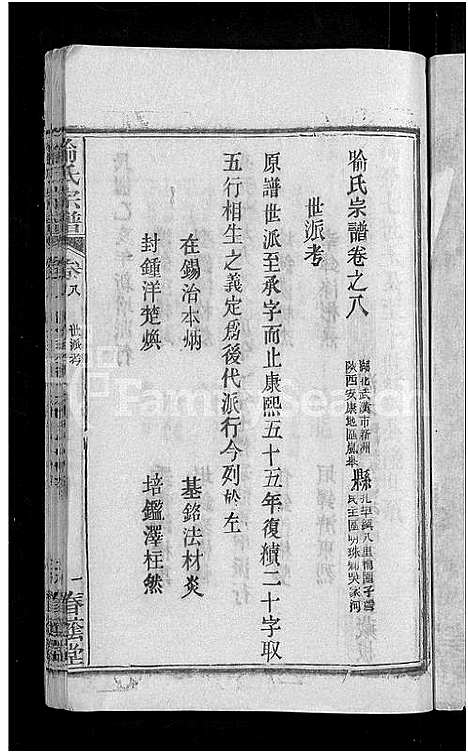 喻氏宗譜卷之八
湖北武漢市新洲
陝西安康地區嵐皋
縣
孔埠鎮八里
民主區明珠
吳家河
世派考
原譜世派至承字而止康熙五十五年復續二十字取
五行相生之義定爲後代派行今列於左
在錫治本炳
基銘法材炎
封鍾洋楚煥
培鑑澤柱然
喻氏宗譜
卷八
世派考
一
春蔭堂
FamilySearch